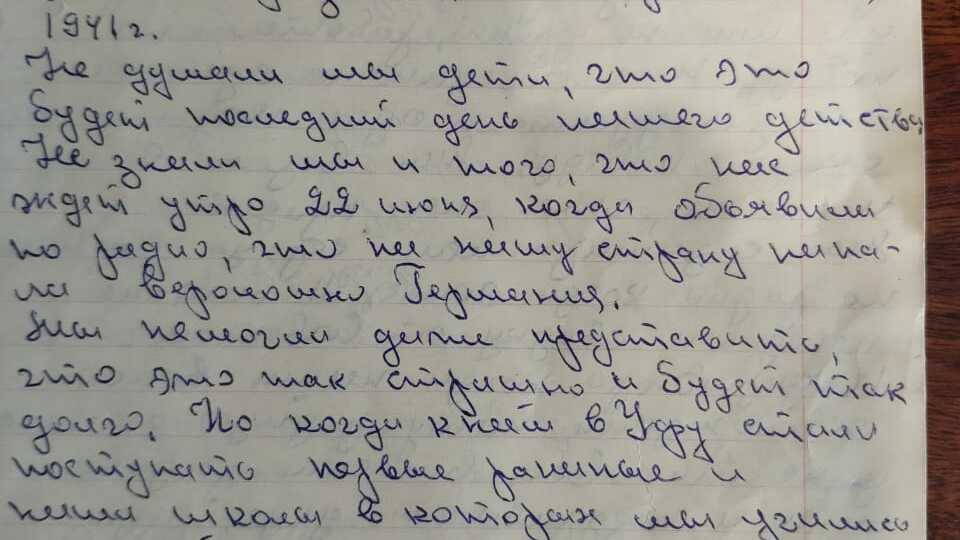 1941 г.
Не думали мы дети, что это
будет последний день нашего детства
Не знали мы и того, что нас
ждет утро 22 июня, когда объявили
по радио, что на нашу страну напа-
ла вероломно Германия.
Мы немогли даже представить,
что это так страшно и будет так
долго. Но когда к нам в Уфу стали
поступать первые раненые и
наши школы в которых мы учились